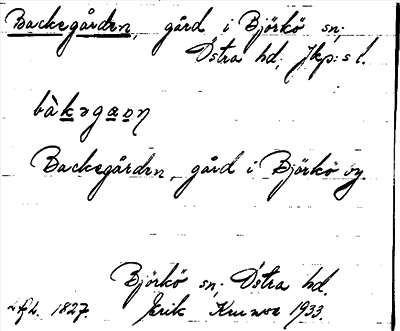 Backegården, gård i Björkö sn;
Östra hd; Jkp:s l.
bàkəgaɷn
Backegården, gård i Björkö by.
Björkö sn; Östra hd.
1827. Erik 1933.